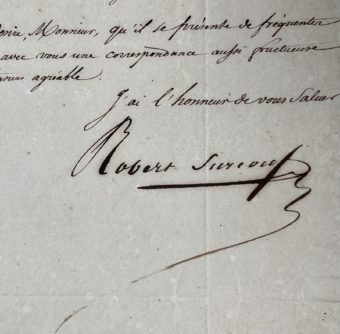 Monsieur, qu'il se présente de fréquenter
avec vous une correspondance aussi fructueuse
agréable.
J'ai l'honneur de vous saluer
Robert Surcouf